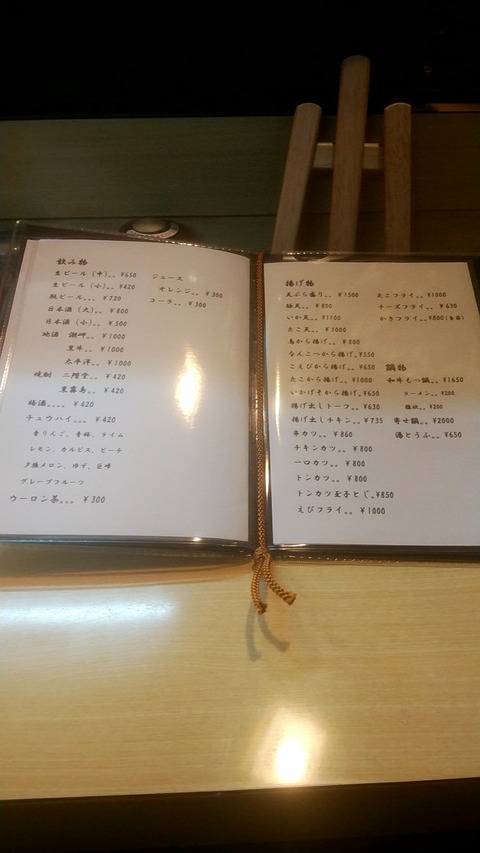 飲み物
生ビール(中)。。¥650
生ビール(小)。。¥420
瓶ビール。。。¥720
日本酒(大)。。¥800
日本酒(小)。。¥500
地酒 潮岬。。¥1000
黒牛。。¥1000
太平洋。。¥1000
焼酎 二階堂。。¥420
黒霧島。。¥420
梅酒。。。。¥420
チュウハイ。。。¥420
青りんご、青梅、ライム
レモン、カルピス、ピーチ
夕張メロン、ゆず、巨峰
グレープフルーツ
ウーロン茶。。。¥300
ジュース
オレンジ。。¥300
コーラ。。¥300
揚げ物
天ぷら盛り。。¥1500
野菜天。。¥800
いか天。。¥1100
たこ天。。¥1000
鳥から揚げ。。¥800
なんこつから揚げ。¥550
こえびから揚げ。。¥650
たこから揚げ。。¥1000
いかげそから揚げ。¥650
揚げ出しトーフ。。¥630
揚げ出しチキン。。¥735
串カツ。。¥860
チキンカツ。。¥800
一口カツ。。¥800
トンカツ。。¥800
トンカツ玉子とじ。¥850
えびフライ。。¥1000
たこフライ。。¥1000
チーズフライ。。¥630
かきフライ。。¥800(季節)
鍋物
和牛もつ鍋。。¥1650
ラーメン。。¥200
雑炊。。¥200
寄せ鍋。。¥2000
湯とうふ。。¥650